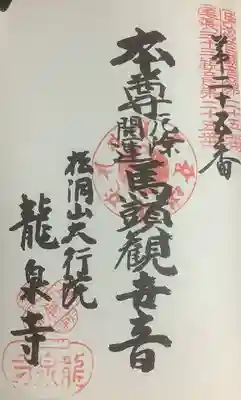 第二十五番
本尊厄除開運馬頭観世音
松洞山大行院
龍泉寺
龍泉寺